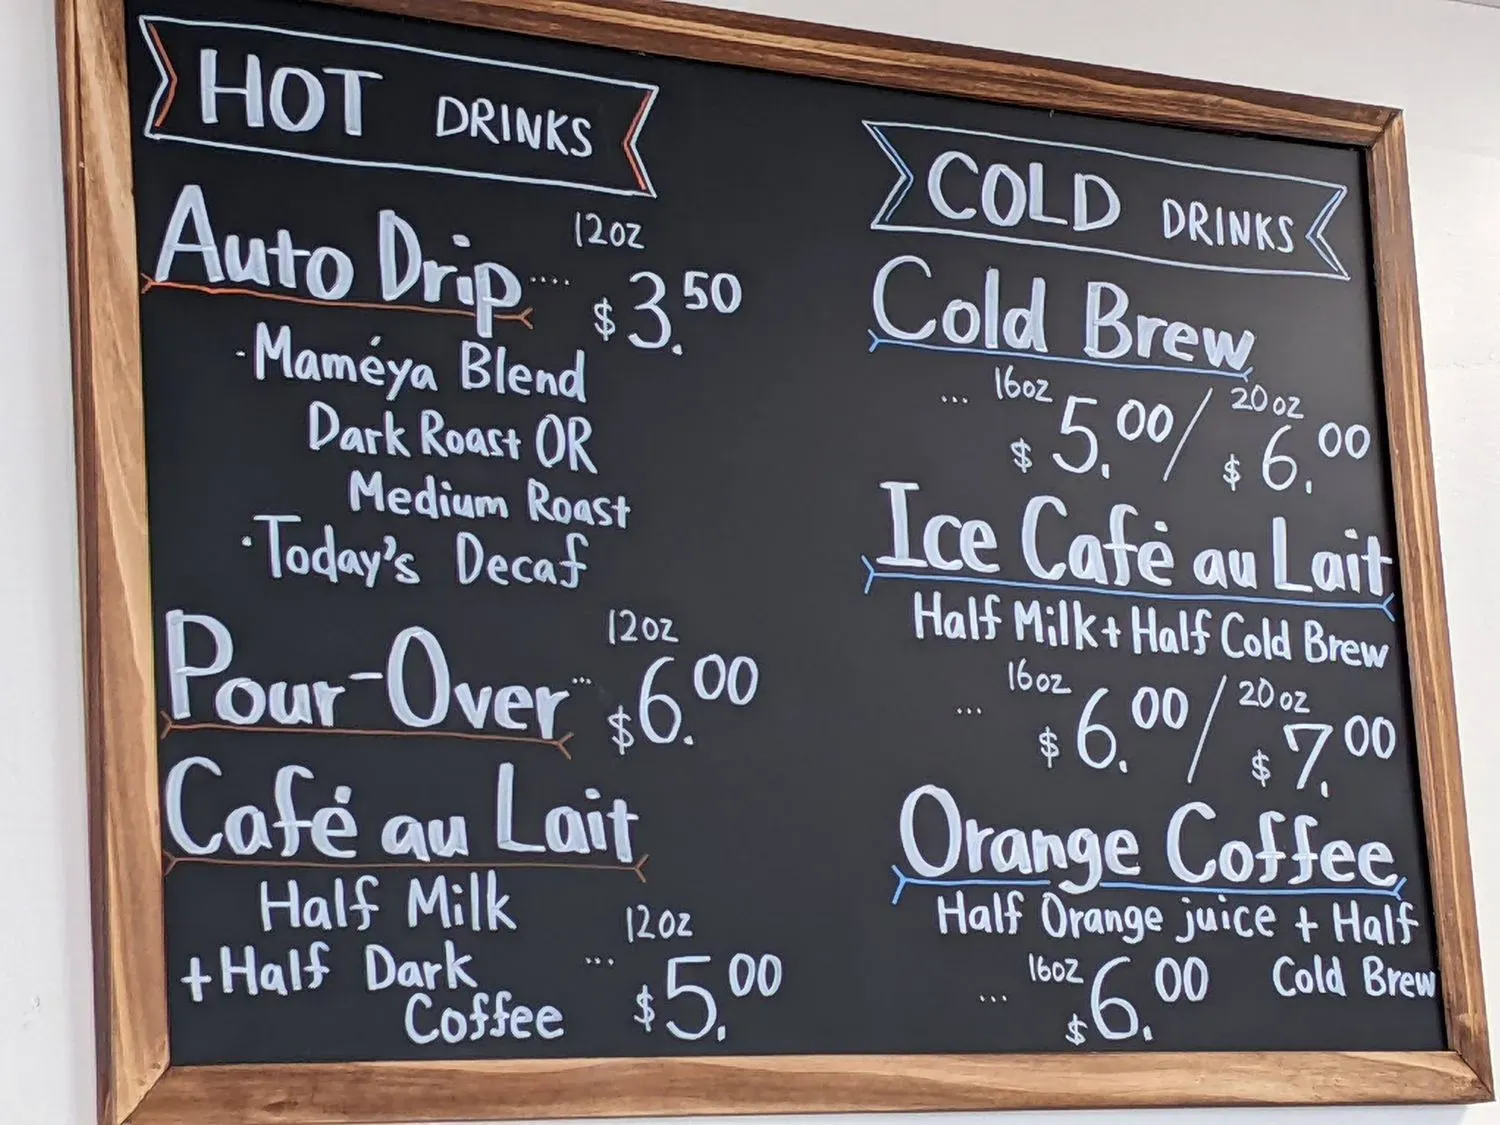 HOT DRINKS
12oz
Auto Drip .... $3.50
· Maméya Blend
Dark Roast OR
Medium Roast
· Today's Decaf
12oz
Pour-Over ... $6.00
Café au Lait
Half Milk
+ Half Dark
Coffee
12oz
... $5.00
COLD DRINKS
Cold Brew
16oz 20oz
... $5.00 / $6.00
Ice Café au Lait
Half Milk + Half Cold Brew
16oz 20oz
... $6.00 / $7.00
Orange Coffee
Half Orange juice + Half
Cold Brew
16oz
... $6.00